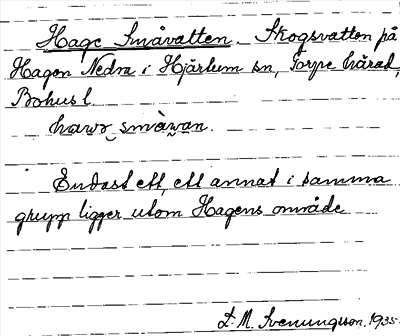 Hage Småvatten. Skogsvatten på
Hagen Nedra i Hjärtum sn, Torpe härad,
Bohusl.
hawə småwan.
Endast ett, ett annat i samma
grupp ligger utom Hagens område
L. M. Svenungsson. 1935.